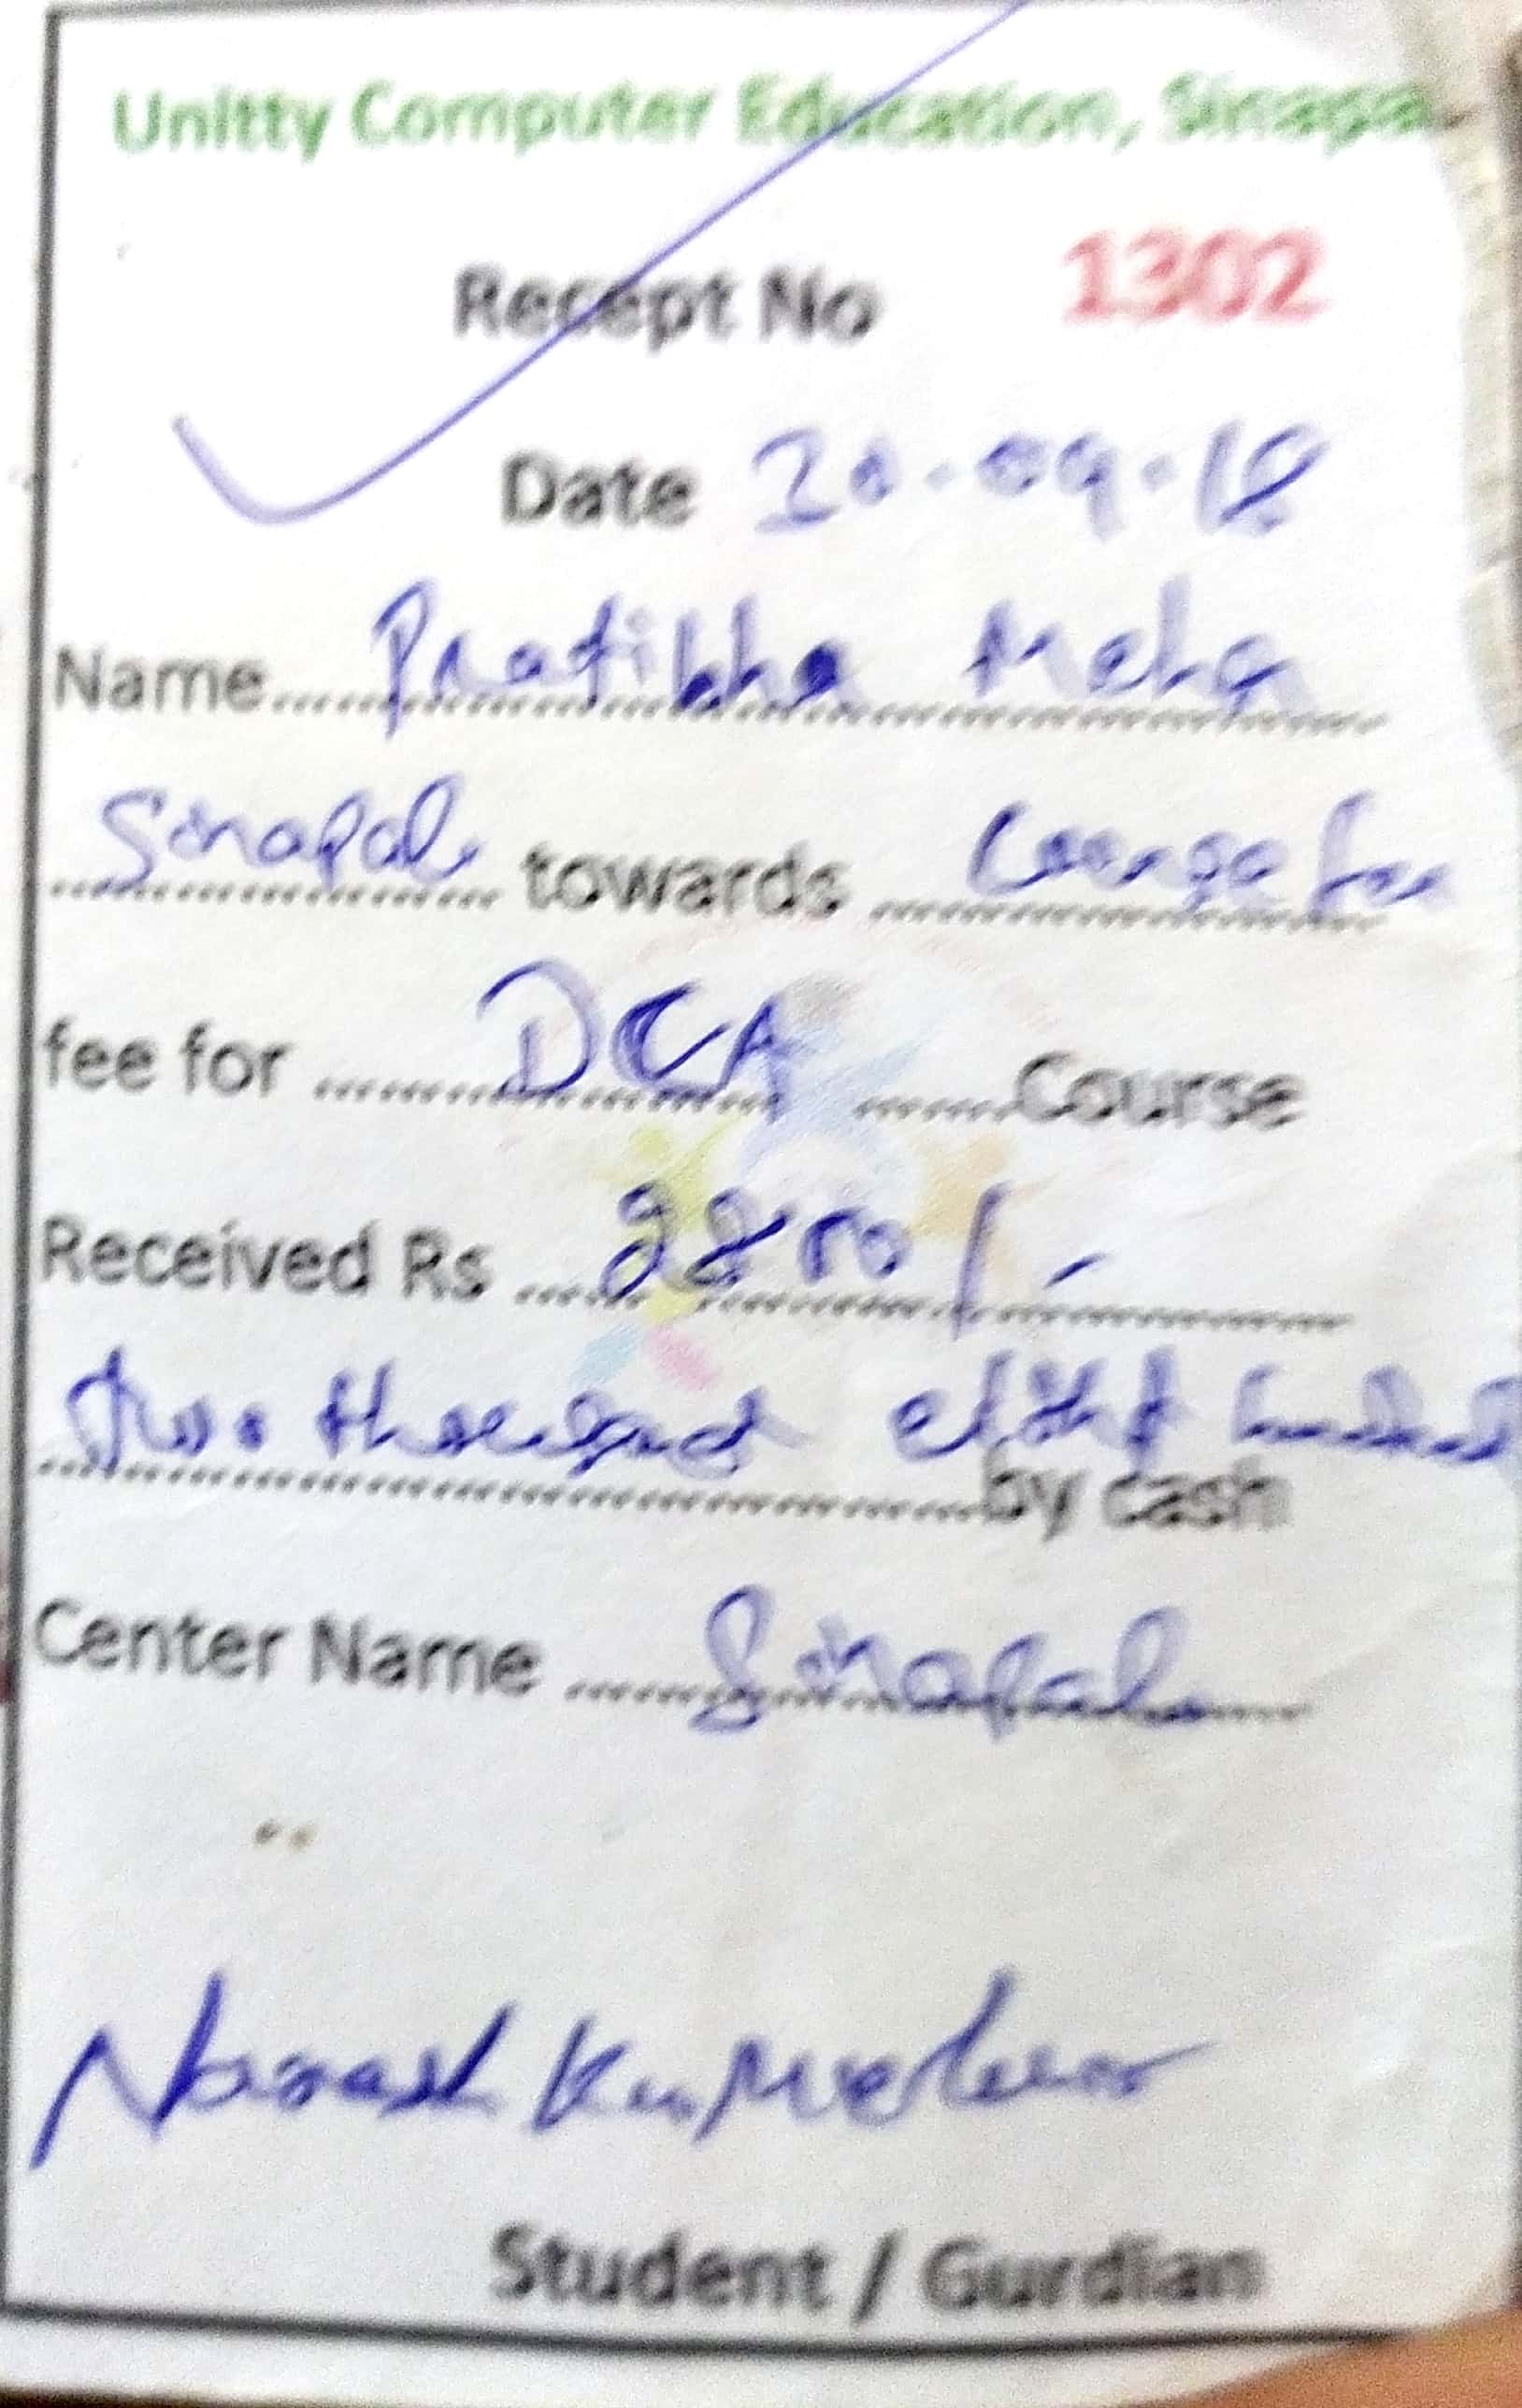 Unitty Computer Education, Sinapa
Recept No 1302
Date 20.09.18
Name Pratibha Meha
Sinapali towards Course fee
fee for DCA Course
Received Rs 2800/-
Two thousand eight hundred
by cash
Center Name Sinapali
Naresh
Student / Gurdian